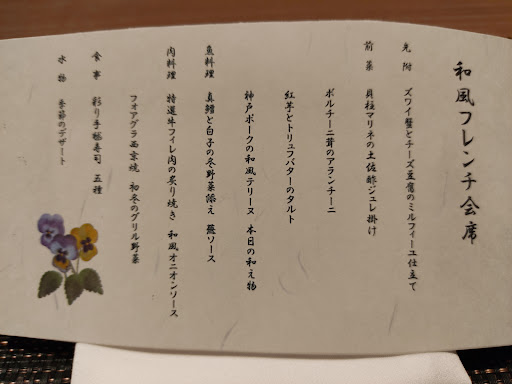 和風フレンチ会席
先附 ズワイ蟹とチーズ豆腐のミルフィーユ仕立て
前菜 貝柱マリネの土佐酢ジュレ掛け
ポルチーニ茸のアランチーニ
紅芋とトリュフバターのタルト
神戸ポークの和風テリーヌ 本日の和え物
魚料理 真鱈と白子の冬野菜添え 蕪ソース
肉料理 特選牛フィレ肉の炙り焼き 和風オニオンソース
フォアグラ西京焼 初冬のグリル野菜
食事 彩り手毬寿司 五種
水物 季節のデザート